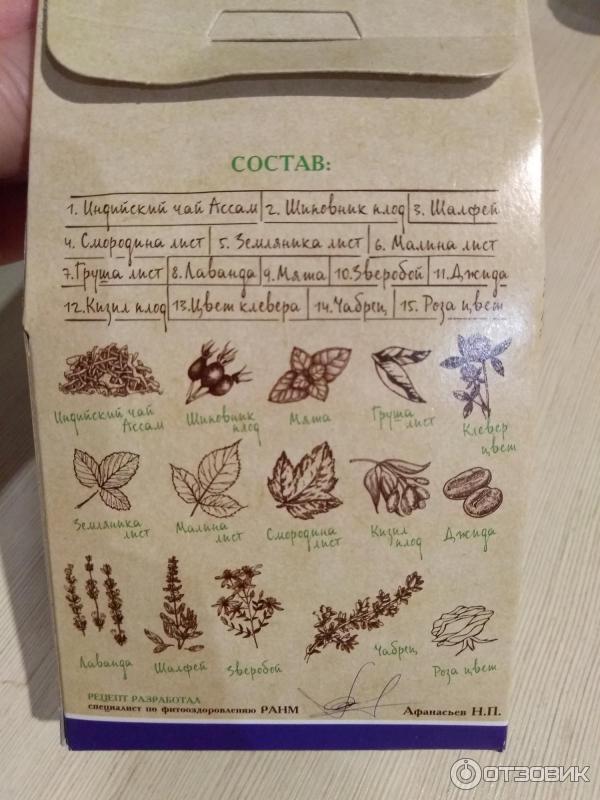 СОСТАВ:
1. Индийский чай Ассам 2. Шиповник плод 3. Шалфей
4. Смородина лист 5. Земляника лист 6. Малина лист
7. Груша лист 8. Лаванда 9. Мята 10. Зверобой 11. Джида
12. Кизил плод 13. Цвет клевера 14. Чабрец 15. Роза цвет
Индийский чай
Ассам
Шиповник
плод
Мята
Груша
лист
Клевер
цвет
Земляника
лист
Малина
лист
Смородина
лист
Кизил
плод
Джида
Лаванда
Шалфей
Зверобой
Чабрец
Роза цвет
РЕЦЕПТ РАЗРАБОТАЛ
специалист по фитооздоровлению РАНМ
Афанасьев Н.П.
ОТЗОВИК